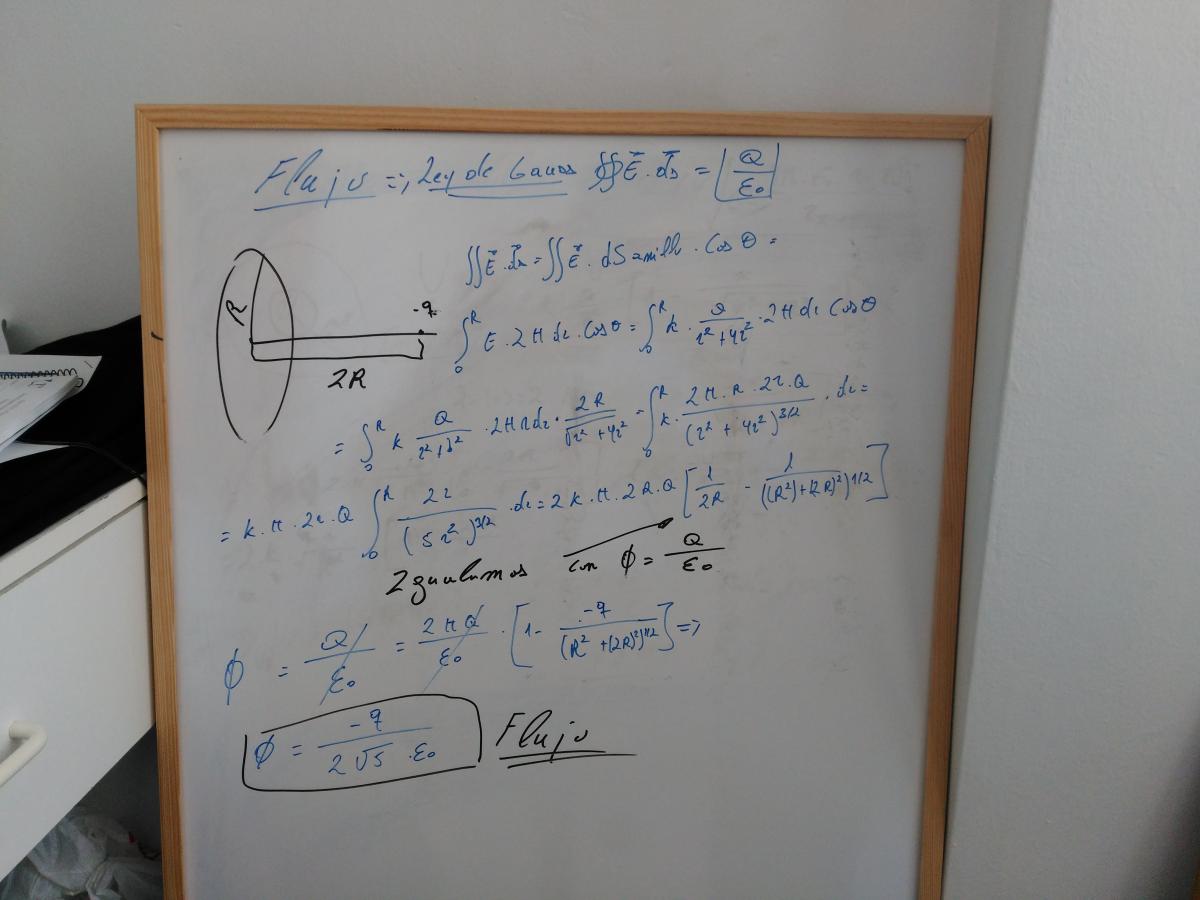 Flujo =; Ley de Gauss ∯ E⃗ · ds⃗ = Q/ε₀
∬ E⃗ · ds⃗ = ∬ E⃗ · dS anillo · Cos θ =
R
-q
2R
∫₀ᴿ E · 2π dr · Cos θ = ∫₀ᴿ k · Q/(r² + 4r²) · 2π dr Cos θ
= ∫₀ᴿ k Q/(r² + b²) · 2π r dr · 2R/√(r² + 4r²) = ∫₀ᴿ k · (2π · R · 2r · Q)/(r² + 4r²)^(3/2) · dr =
= k · π · 2r · Q ∫₀ᴿ 2r/(5r²)^(3/2) · dr = 2k · π · 2R · Q [1/(2R) - 1/((R²)+(2R)²)^(1/2)]
Igualamos con ϕ = Q/ε₀
ϕ = Q/ε₀ = 2πQ/ε₀ · [1 - (-q)/(R² + (2R)²)^(1/2)] =>
ϕ = -q/(2√5 · ε₀) Flujo